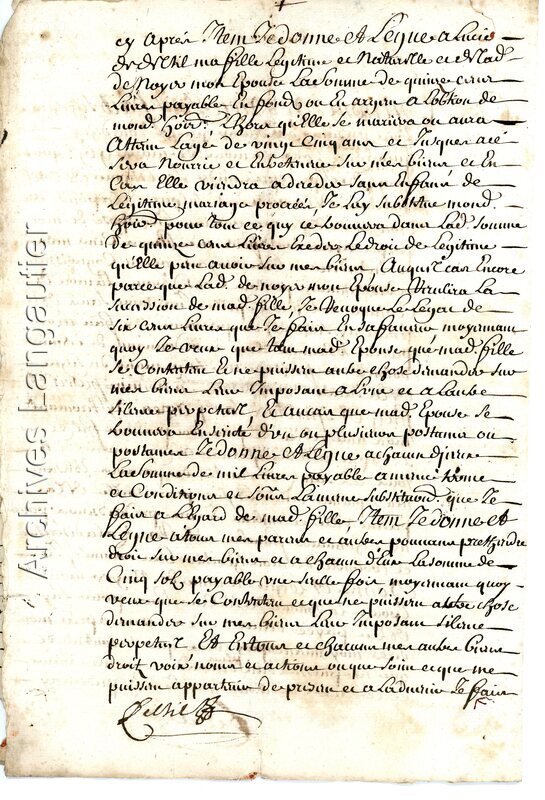 cy aprés Item Je donne et Legue a Lucie
de delzil ma fille Legitime et Naturelle et de Lad.
de Noyer mon Epouse La somme de quinze cens
Livres payable En fondz ou En argen a Loption de
mond. hoir. Lhors quElle se mariera ou aura
Attain Lagé de vingt Cinq ans et Jusques a cé
Sera Nourrie et Entretenue sur mes biens et En
Cas Elle viendra a deceder sans Enfans de
Legitime mariage procreés, Je Luy substitue mond.
hoir. pour tout ce quy ce trouvera dans Lad. somme
de quinze cens Livres Et de Le droit de Legitime
quElle peut avoir sur mes biens Auquel cas Encore
parce que Lad. de noyer mon Epouse Reculira La
succession de mad. fille, Je Revoque Le Legat de
six cens Livres que Je fais En sa faveur moyennant
quoy Je veux que tant mad. Epouse que mad. fille
se Contenten Et ne puissen autre chose demander sur
mes biens Leur Imposant a Lune et a Lautre
silence perpetuel, Et au cas que mad. Epouse se
trouvera Enceinte d'un ou plusieurs postumes ou
postumes Je donne et Legue a chacun d'iceux
La somme de mil Livres payable a meme terme
et Conditions et sous La meme substitution que Je
fais a Légard de mad. fille, Item Je donne et
Legue a tous mes parens et autres pouvant prethendre
droit sur mes biens et a chacun d'Eux La somme de
Cinq solz payable une seulle fois moyennant quoy
veux que se Contenten et que ne puissen autre chose
demander sur mes biens Leur Imposant silence
perpetuel Et En tous et chacuns mes autres biens
droit voix noms et actions ou que soint et que me
puissen appartenir de present et a Ladvenir Je fais
Delzil
Archives Langautier